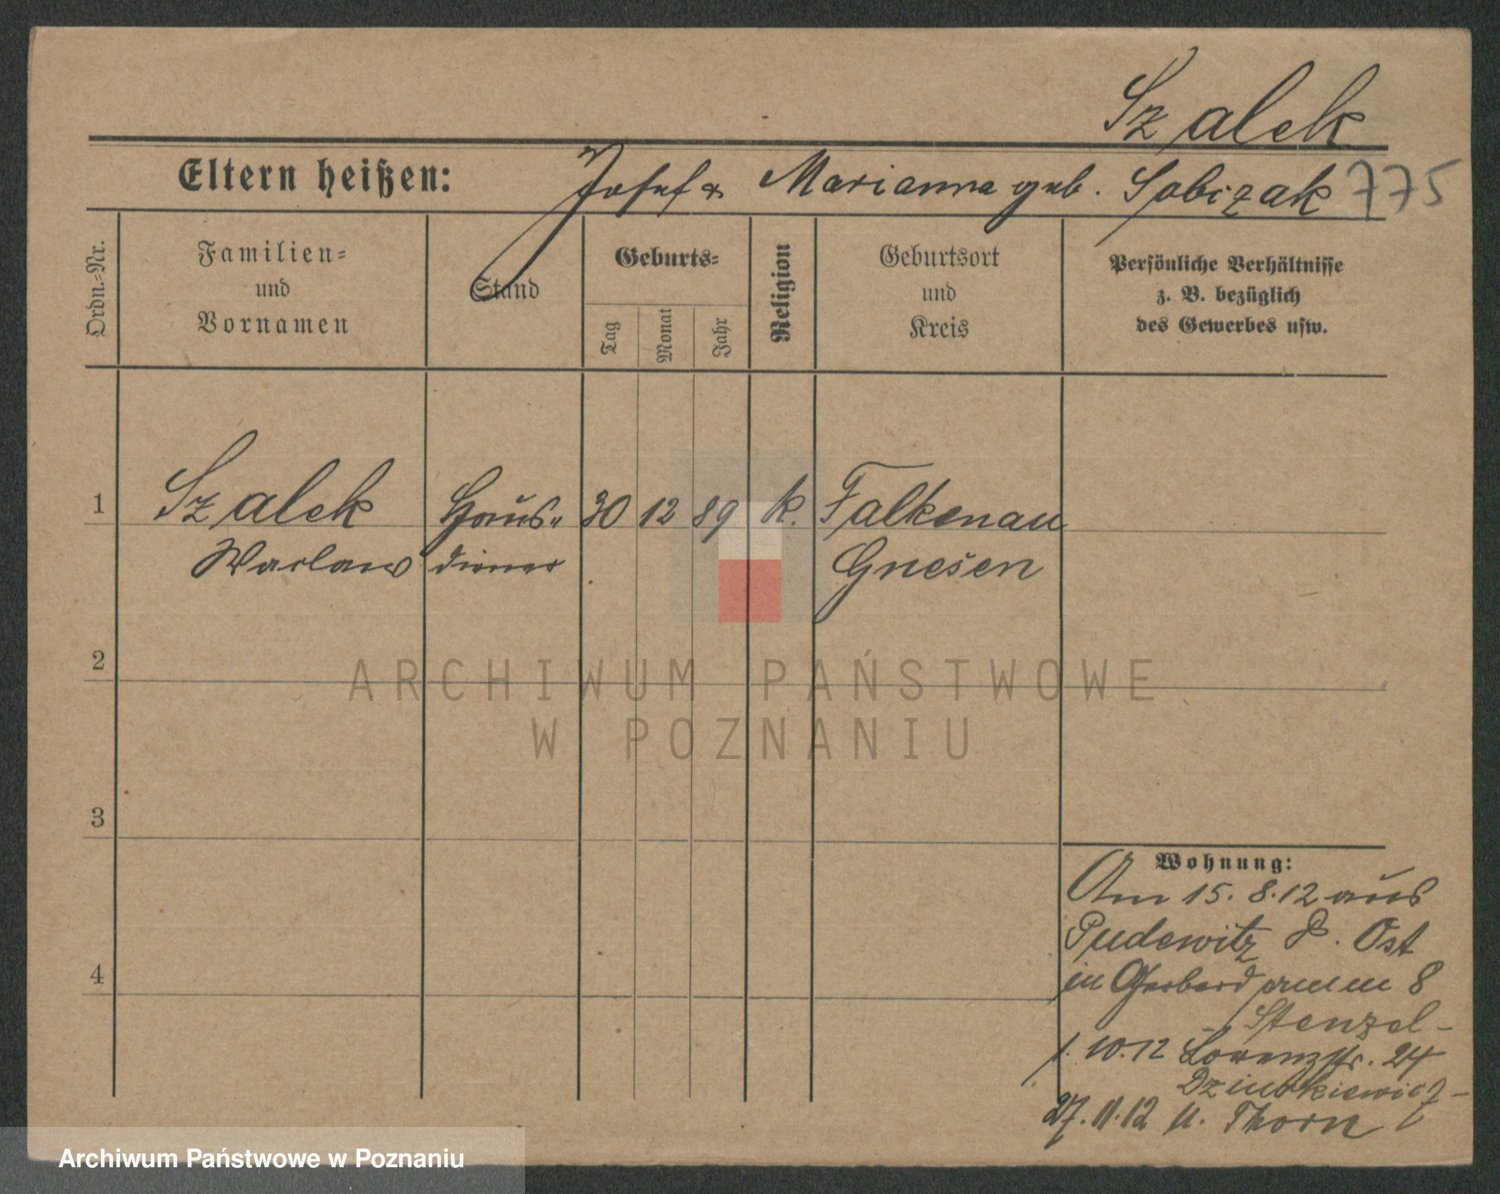 Szalek
Eltern heißen: Josef & Marianna geb. Sobczak 775
Ordn.-Nr.
Familien-
und
Vornamen
Stand
Geburts-
Tag
Monat
Jahr
Religion
Geburtsort
und
Kreis
Persönliche Verhältnisse
z. B. bezüglich
des Gewerbes usw.
1 Szalek Haus- 30 12 89 k. Falkenau
Waclaw diener Gnesen
2
ARCHIWUM PAŃSTWOWE
W POZNANIU
3
Wohnung:
Am 15. 8. 12 aus
Pudewitz Ost
in Gerberdamm 8
- Stenzel -
1. 10. 12 Lorenzstr. 24
27. 11. 12 n. Thorn
4
Archiwum Państwowe w Poznaniu